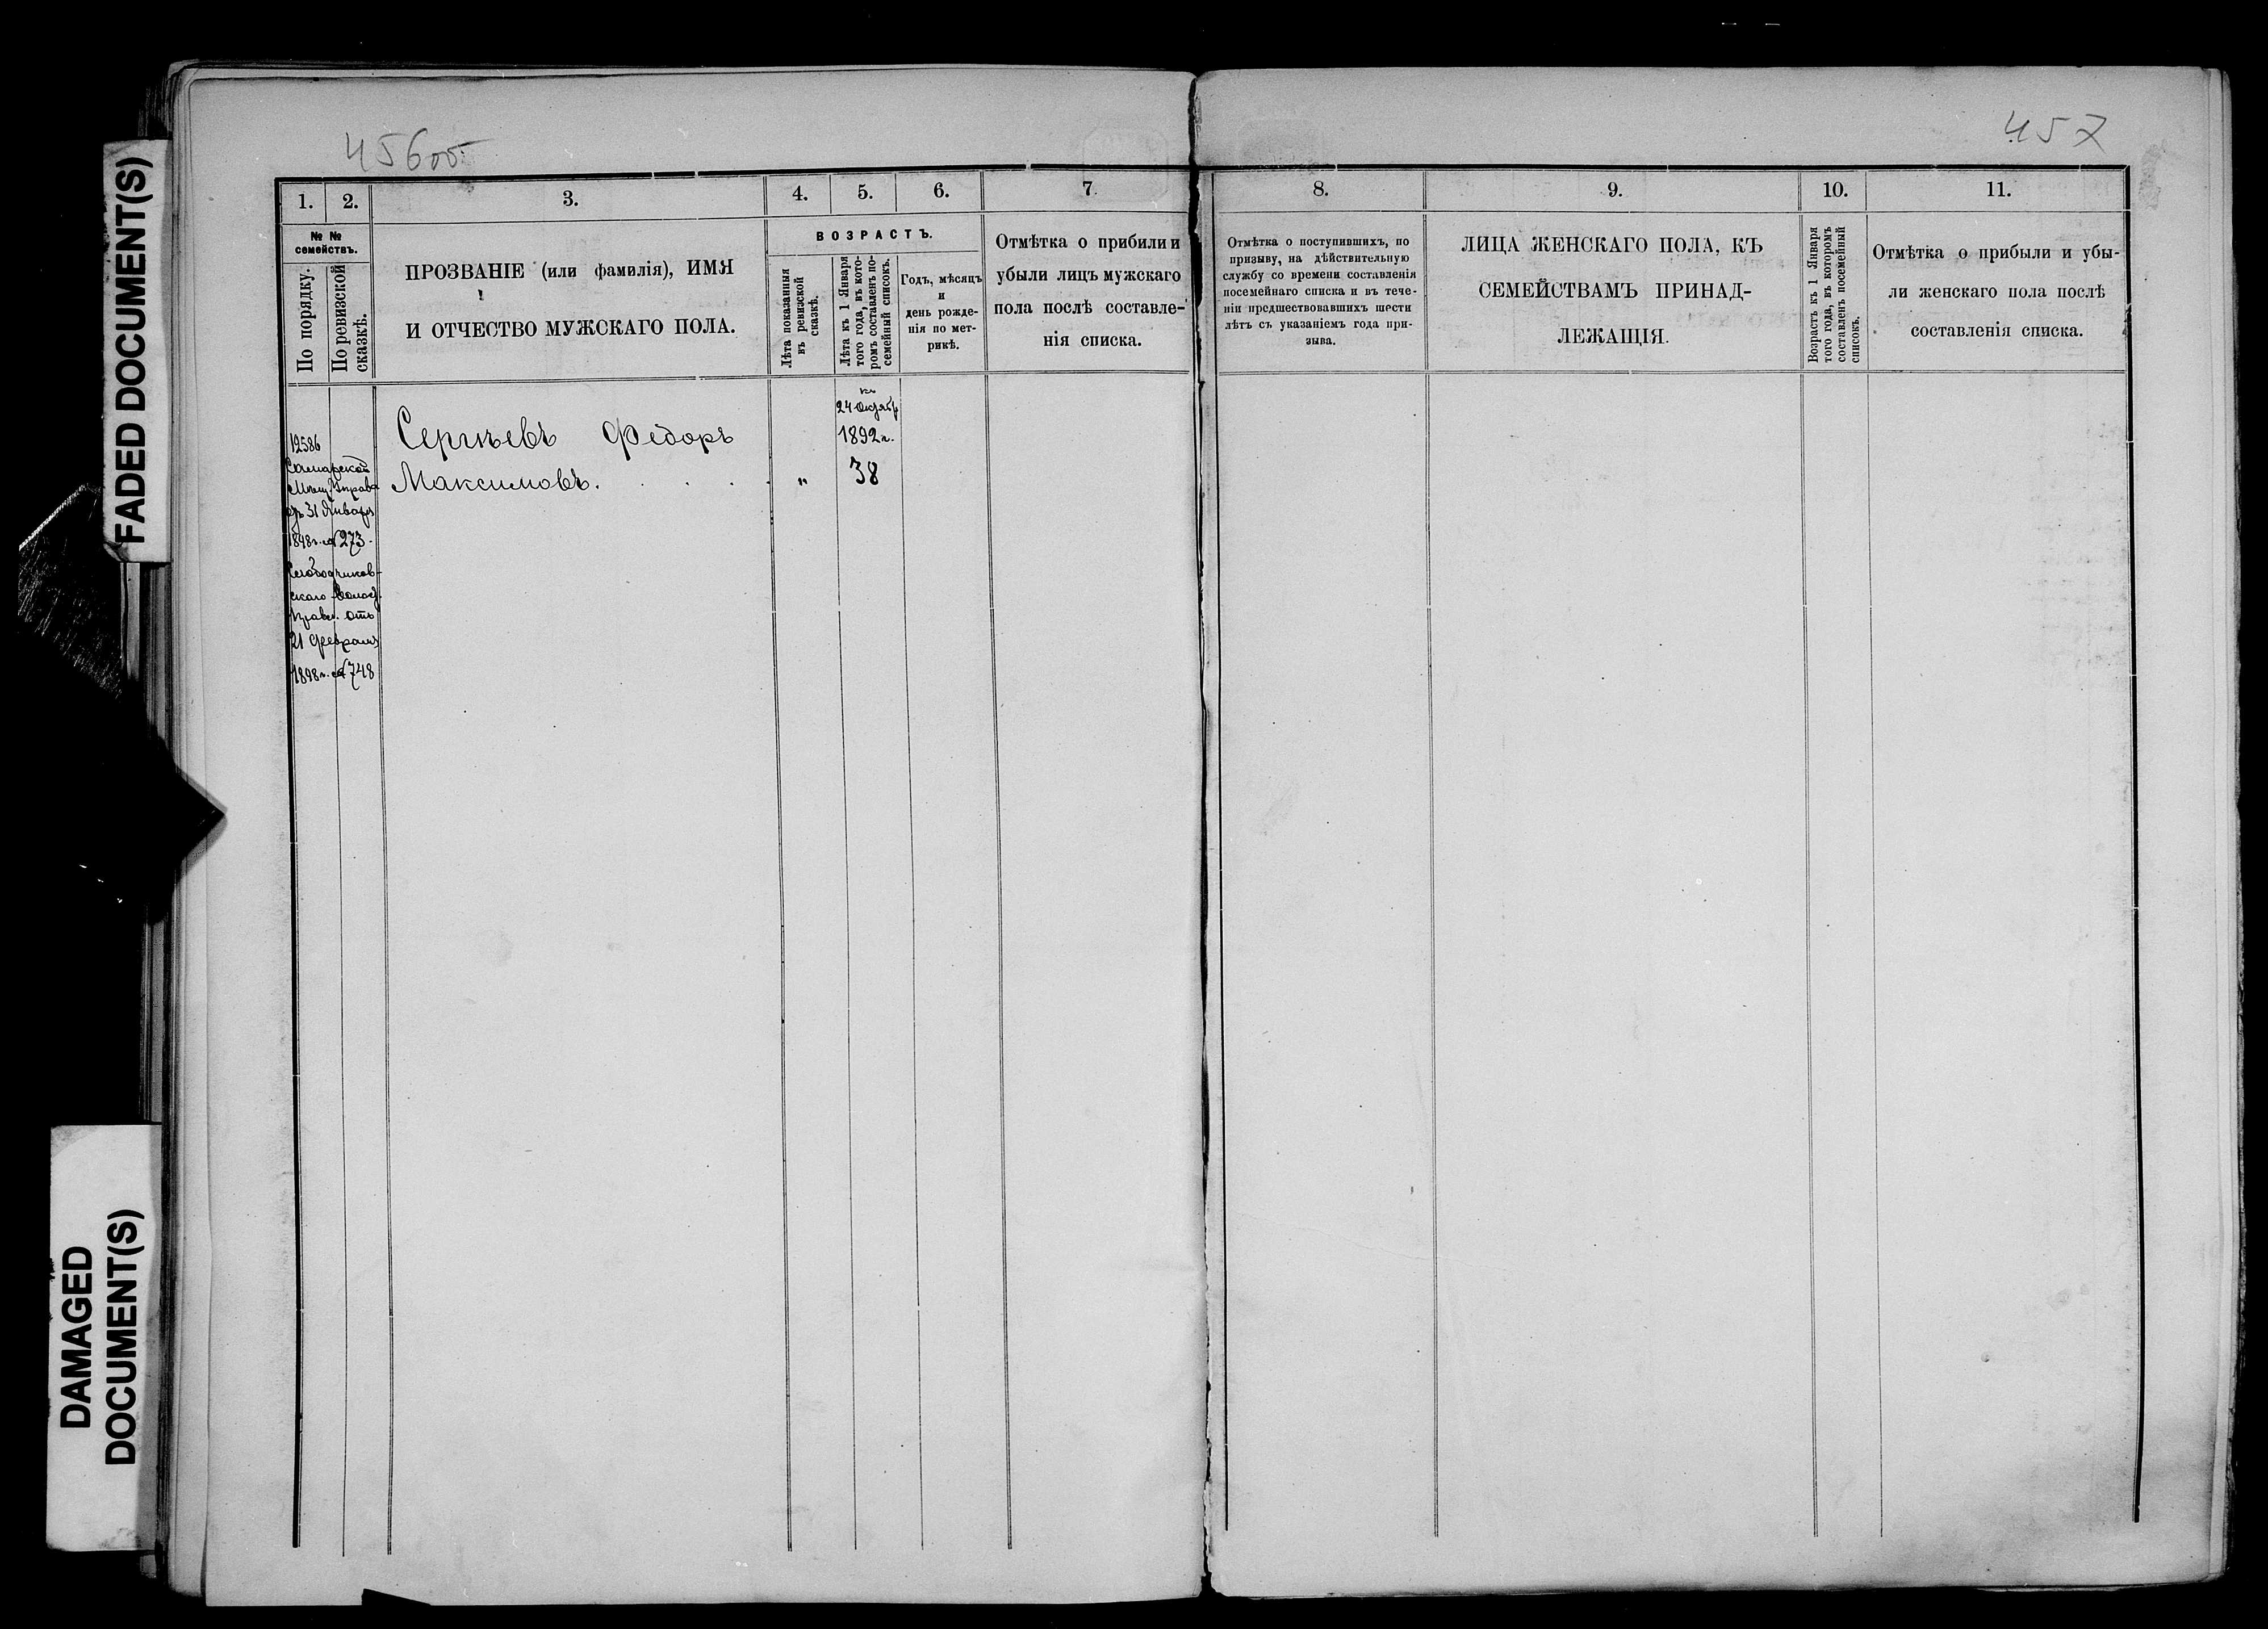 FADED DOCUMENT(S)
DAMAGED
DOCUMENT(S)
456об.
1.
2.
3.
4.
5.
6.
7.
№ №
семействъ.
По порядку.
По ревизской
сказкѣ.
ПРОЗВАНІЕ (или фамилія), ИМЯ
И ОТЧЕСТВО МУЖСКАГО ПОЛА.
ВОЗРАСТЪ.
Лѣта показанныя
въ ревизской
сказкѣ.
Лѣта къ 1 Января
того года, въ кото-
ромъ составленъ по-
семейный списокъ.
Годъ, мѣсяцъ
и
день рожде-
нія по мет-
рикѣ.
Отмѣтка о прибыли и
убыли лицъ мужскаго
пола послѣ составле-
нія списка.
12586
Самарской
Мѣщ. Управ.
отъ 31 Января
1898 г. № 273.
скаго Волост.
Правл. отъ
21 Февраля
1898 г. № 748
Сергѣевъ Федоръ
Максимовъ.
"
къ
24 Октября
1892 г.
38
457
8.
9.
10.
11.
Отмѣтка о поступившихъ, по
призыву, на дѣйствительную
службу со времени составленія
посемейнаго списка и въ тече-
ніи предшествовавшихъ шести
лѣтъ съ указаніемъ года при-
зыва.
ЛИЦА ЖЕНСКАГО ПОЛА, КЪ
СЕМЕЙСТВАМЪ ПРИНАД-
ЛЕЖАЩІЯ.
Возрастъ къ 1 Января
того года, въ которомъ
составленъ посемейный
списокъ.
Отмѣтка о прибыли и убы-
ли женскаго пола послѣ
составленія списка.